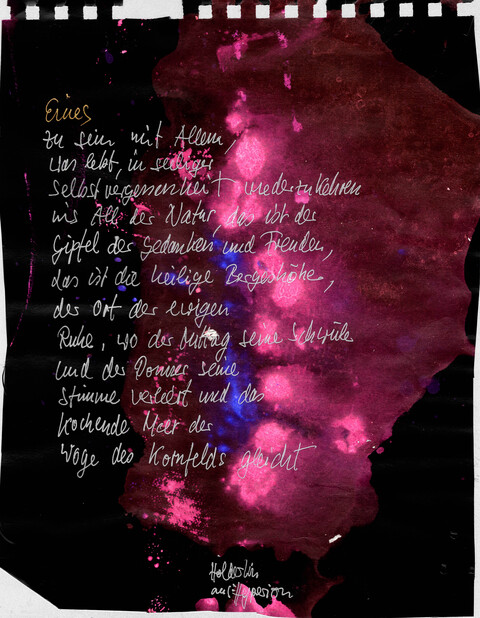 Eines
zu sein mit Allem,
was lebt, in seliger
Selbstvergessenheit wiederzukehren
ins All der Natur, das ist der
Gipfel der Gedanken und Freuden,
das ist die heilige Bergeshöhe,
der Ort der ewigen
Ruhe, wo der Mittag seine Schwüle
und der Donner seine
Stimme verliert und das
kochende Meer der
Woge des Kornfelds gleicht
Hölderlin
aus: Hyperion